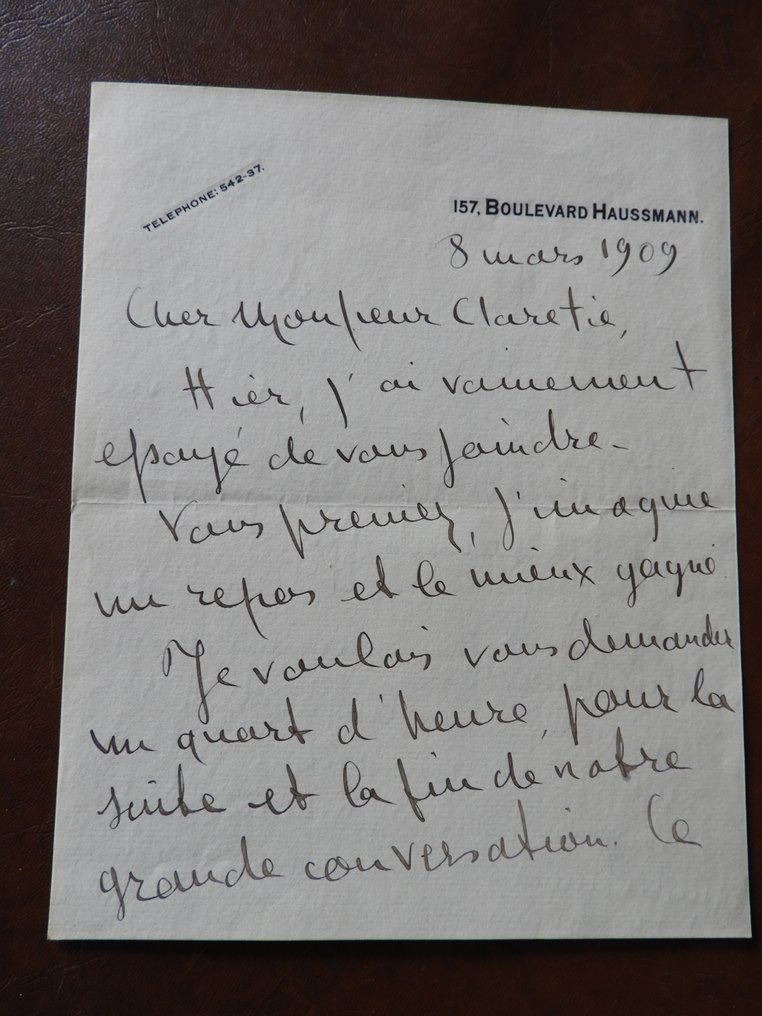 TELEPHONE: 542-37.
157, BOULEVARD HAUSSMANN.
8 mars 1909
Cher Monsieur Claretie,
Hier, j'ai vainement
essayé de vous joindre.
Vous preniez, j'imagine
un repos et le mieux gagné.
Je voulais vous demander
un quart d'heure, pour la
suite et la fin de notre
grande conversation. Ce